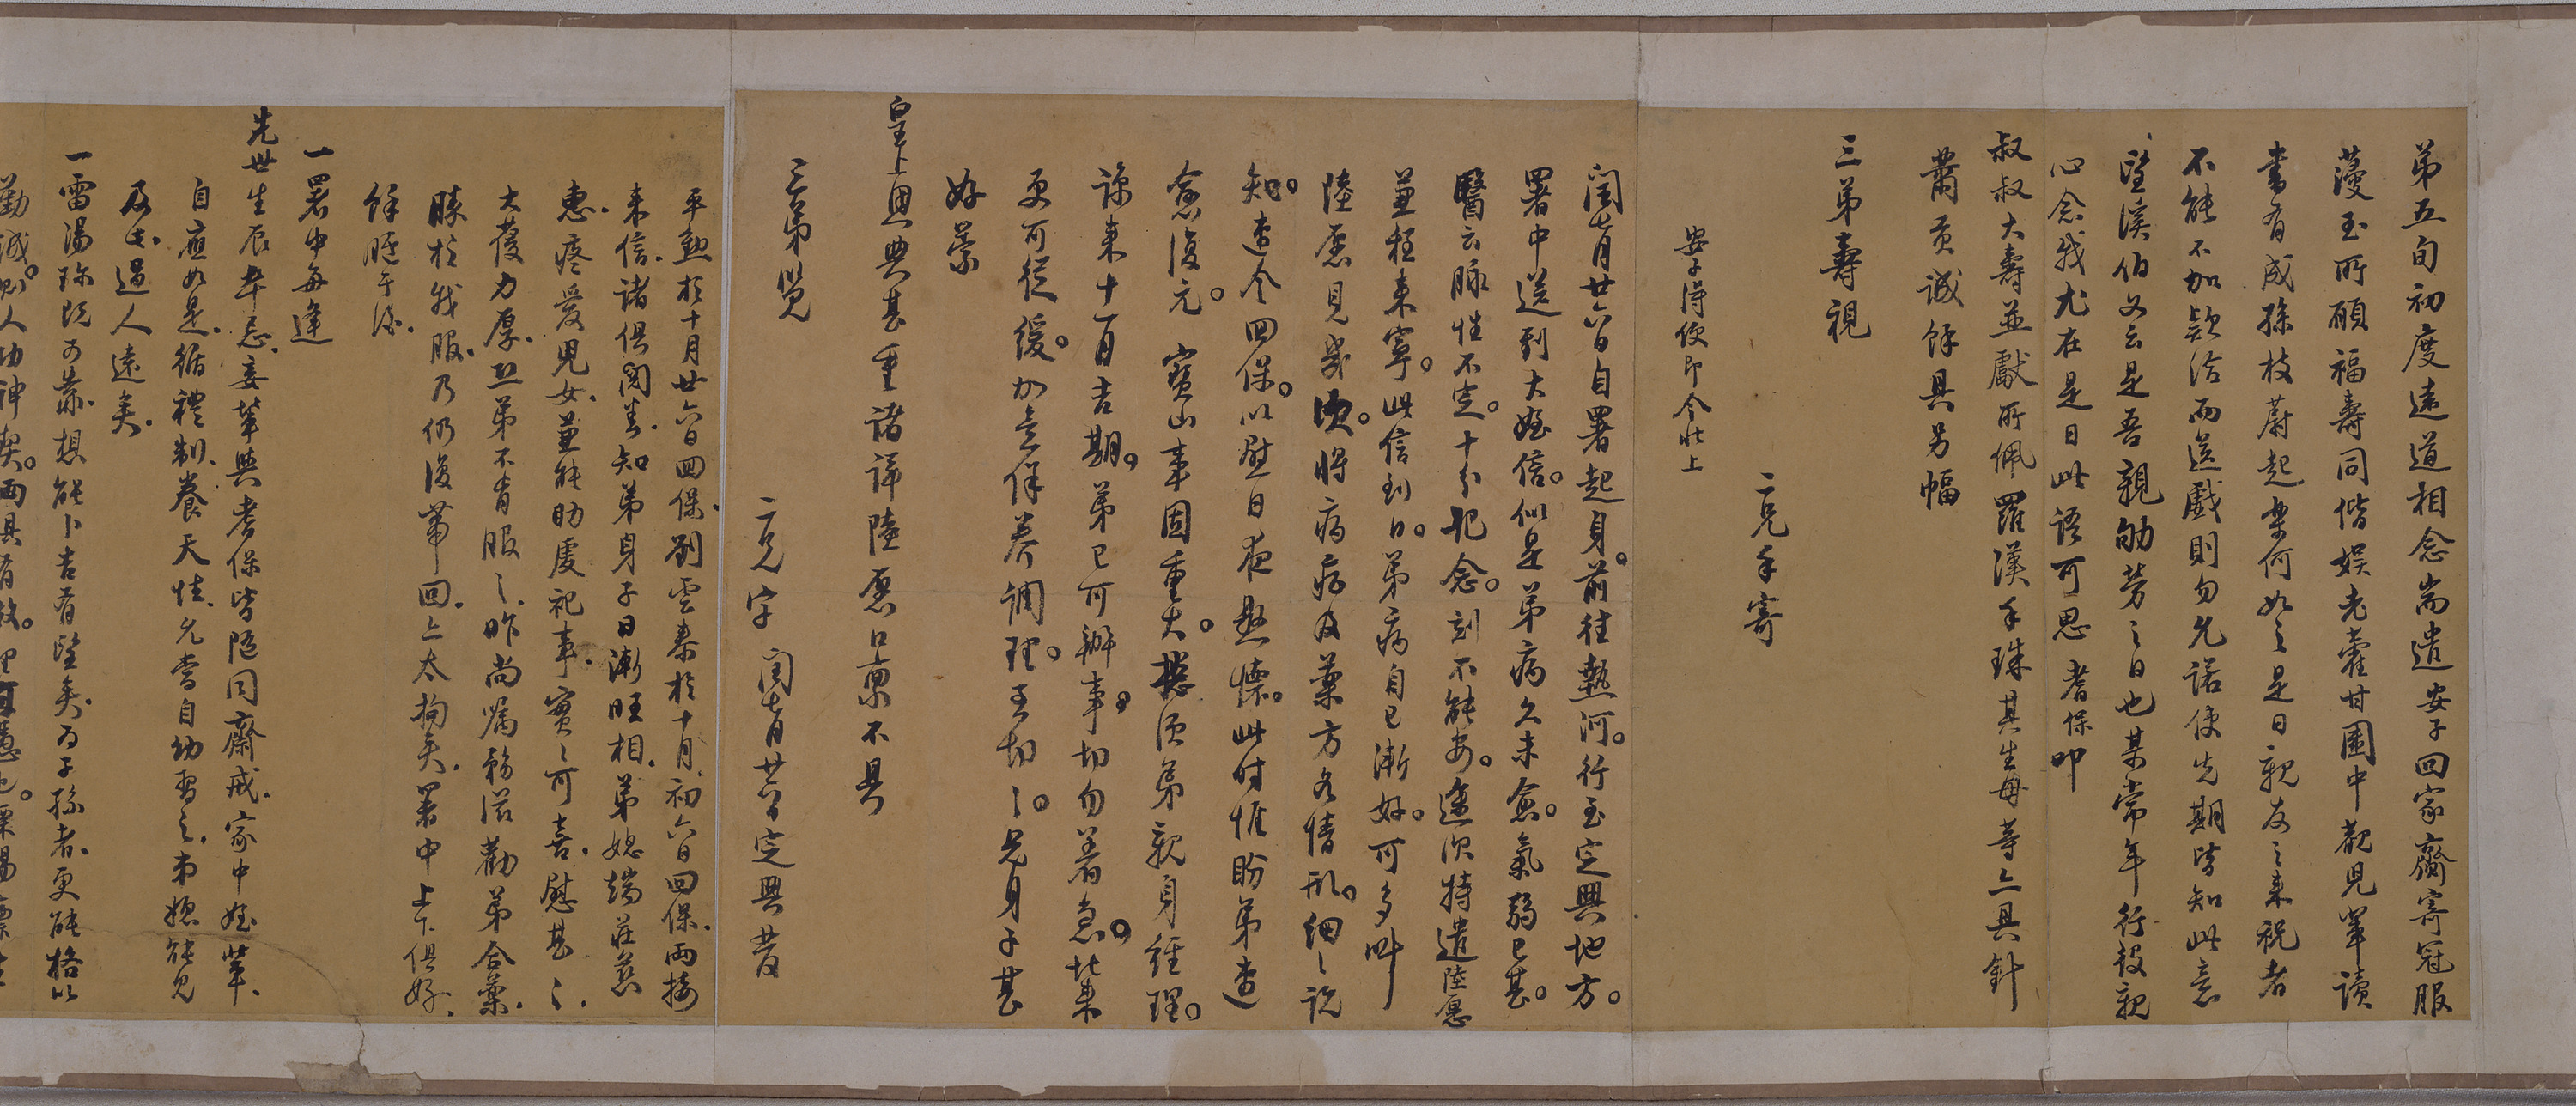 弟五旬初度遠道相念耑遣安子回家齋寄冠服
蔓玉所願福壽同偕娱老藿甘圃中觀兒輩讀
書有成孫枝蔚起樂何如之是日親友之來祝者
不能不加款洽而送戲則勿允諾使先期皆知此意
望溪伯父云是吾親劬勞之日也某常年行役親
心念我尤在是日此語可思耆保叩
叔叔大壽並獻所佩羅漢手珠其生母等亦具針
黹貢誠餘具另幅
三弟壽視
二兄手寄
安子得便即令北上
閏七月廿六日自署起身。前往熱河。行至定興地方。
署中送到大姪信。似是弟病久未愈。氣弱已甚。
醫云脉性不定。十分記念。刻不能安。遂次特遣陸愿
兼程來寧。此信到日。弟病自已漸好。可多叫
陸愿見幾次。將病症及藥方各情形。細細說
知。速令回保。以慰日夜懸懷。此時惟盼弟速
愈復元。寶山事固重大。總須弟親身經理。
諒來十一月吉期。弟已可辦事。切勿着急。北來
更可從緩。加意保養調理。至切之。兄身子甚
好蒙
皇上恩典甚重諸詳陸愿口禀不具
三弟覽
二兄字 閏七月廿八日定興發
平勲於十月廿六日回保。劉雲泰於十月初六日回保。兩接
來信。諸俱閱悉。知弟身子日漸旺相。弟媳端莊慈
惠。疼愛兒女。兼能助虔祀事。實實可喜。慰甚之。
大葠力厚。且弟不肯服之。昨尚囑務滋勸弟合藥。
賸於我服。乃仍復帶回。亦太拘矣。署中上下俱好。
餘賸于後。
一署中每逢
先世生辰卒忌。妾輩與耆保皆隨同齋戒。家中姪輩。
自應如是。循禮制。養天性。允當自幼習之。弟媳能見
及此。過人遠矣。
一雷湯珍既可靠。想能卜吉有望矣。為子孫者。更能格以